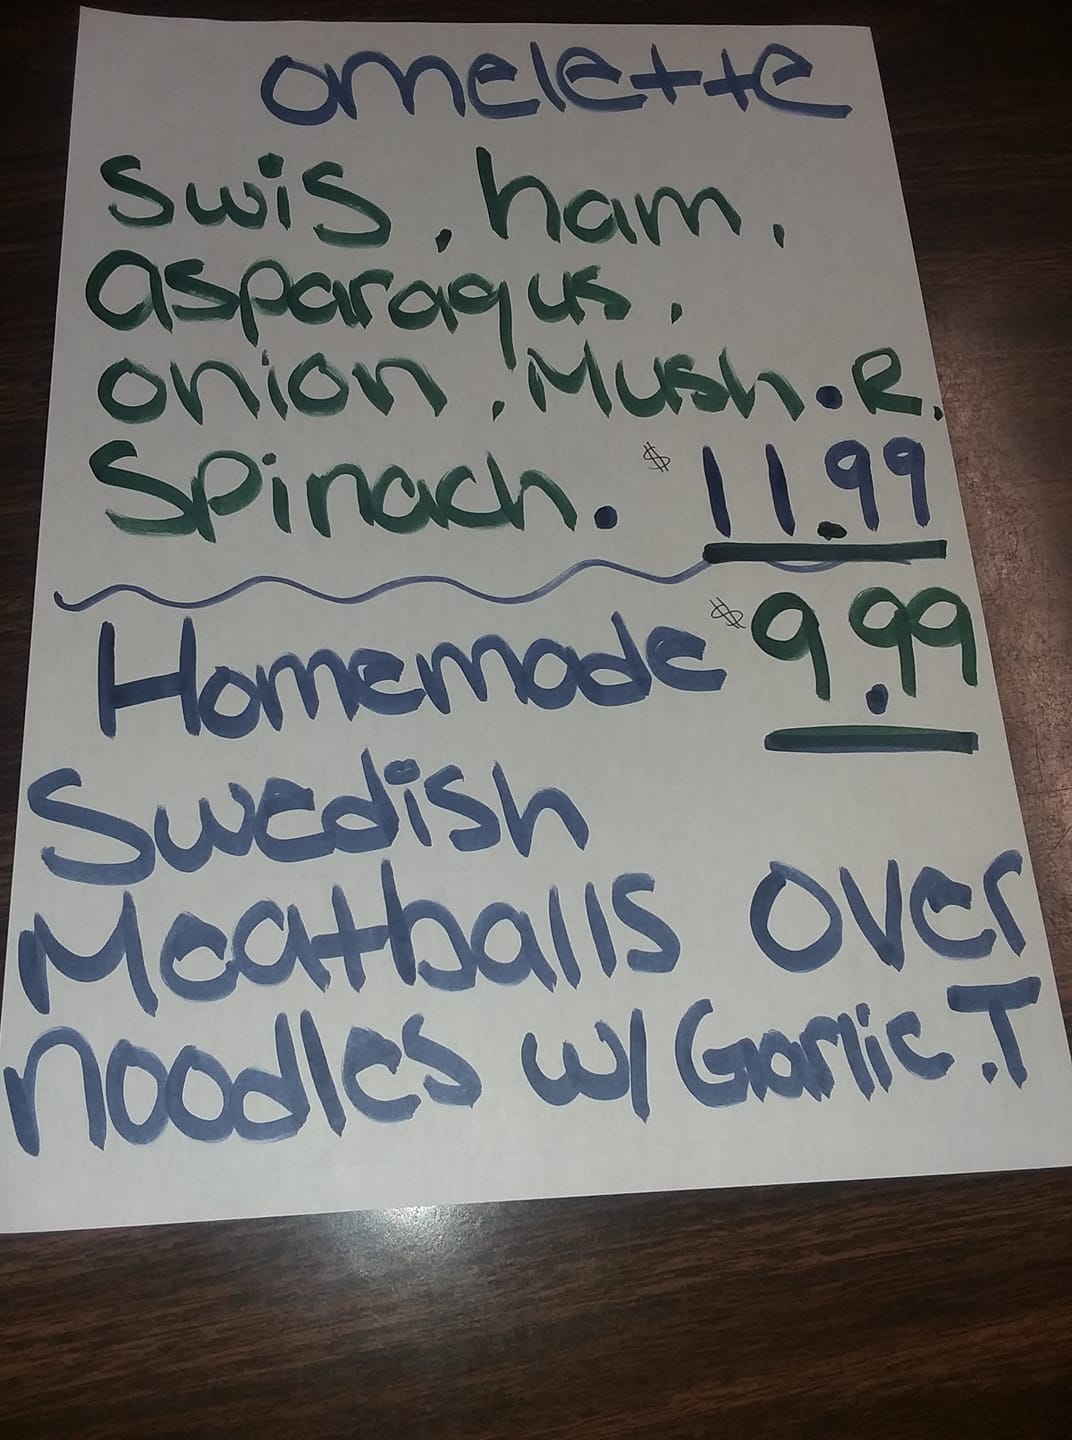 omelette
Swis, ham,
asparagus,
onion, Mush.R,
Spinach. $11.99
Homemade $9.99
Swedish
Meatballs over
noodles w/ Garlic.T